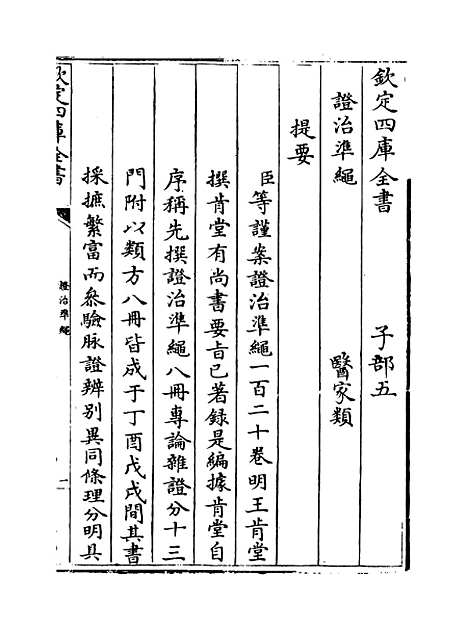 欽定四庫全書　子部五
證治準繩　醫家類
提要
臣等謹案證治準繩一百二十卷明王肯堂
撰肯堂有尚書要旨已著録是編據肯堂自
序稱先撰證治準繩八冊專論雜證分十三
門附以類方八冊皆成于丁酉戊戌間其書
採摭繁富而叅驗脉證辨别異同條理分明具
欽定四庫全書
證治準繩
一